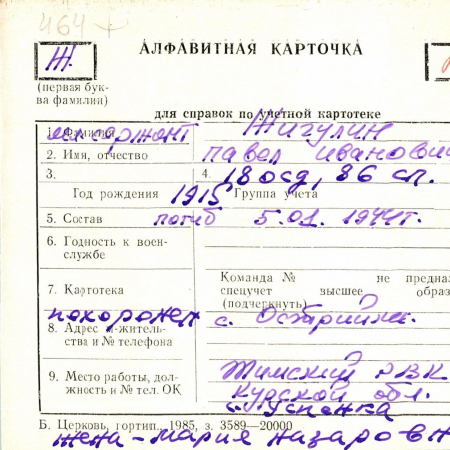 464
АЛФАВИТНАЯ КАРТОЧКА
Ж.
(первая бук-
ва фамилии)
для справок по учетной картотеке
1. Фамилия мл. сержант Жигулин
2. Имя, отчество Павел Иванович
3. 4. 18 осд, 86 сп.
Год рождения 1915 Группа учета
5. Состав погиб 5.01.1944г.
6. Годность к воен-
службе
Команда № не предназ
7. Картотека спецучет высшее образ
(подчеркнуть)
похоронен с.
8. Адрес м-житель-
ства и № телефона
9. Место работы, дол-
жность и № тел. ОК
Тимский РВК
Курской обл.
с. Успенка
Б. Церковь, гортип., 1985, з. 3589—20000
жена - Мария Назаровн